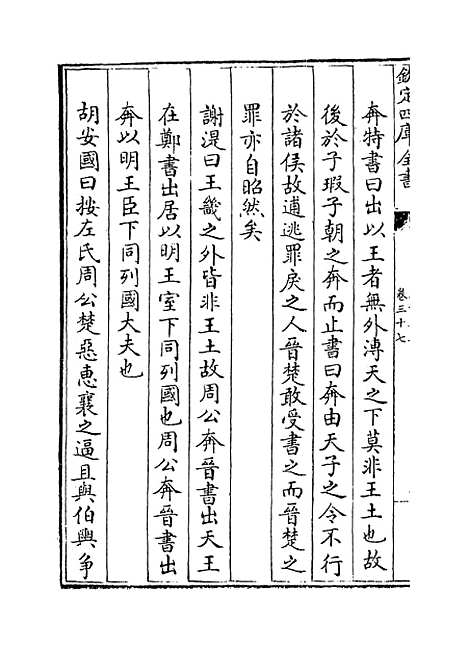 欽定四庫全書
卷三十七
奔特書曰出以王者無外溥天之下莫非王土也故
後於子瑕子朝之奔而止書曰奔由天子之令不行
於諸侯故逋逃罪戾之人晉楚敢受書之而晉楚之
罪亦自昭然矣
謝湜曰王畿之外皆非王土故周公奔晉書出天王
在鄭書出居以明王室下同列國也周公奔晉書出
奔以明王臣下同列國大夫也
胡安國曰按左氏周公楚惡惠襄之逼且與伯輿爭